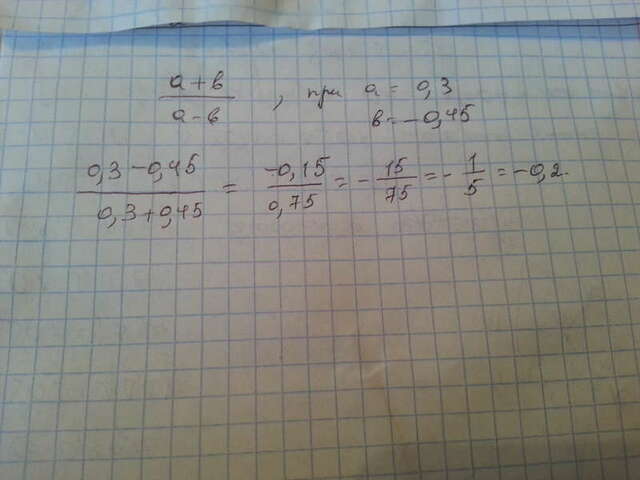 a+в / a-в , при a = 0,3
в = -0,45
0,3-0,45 / 0,3+0,45 = -0,15 / 0,75 = - 15/75 = - 1/5 = -0,2.